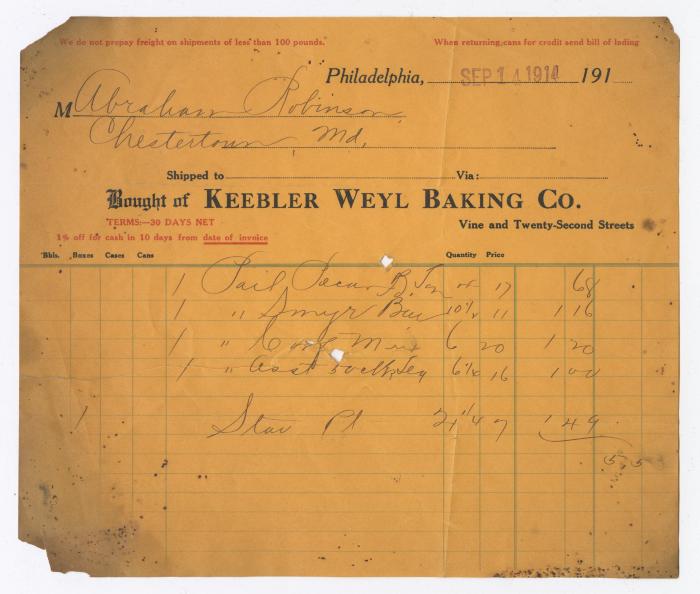 We do not prepay freight on shipments of less than 100 pounds. When returning cans for credit send bill of lading
Philadelphia, SEP 14 1914 191
M Abraham Robinson
Chestertown Md.
Shipped to Via:
Bought of KEEBLER WEYL BAKING CO.
TERMS:—30 DAYS NET Vine and Twenty-Second Streets
1% off for cash in 10 days from date of invoice
Bbls. Boxes Cases Cans Quantity Price
1 Pail 17 68
1 " 10½ 11 1 16
1 " 6 20 1 20
1 " Asst 6¼ 16 1 00
1 21¼ 7 1 49